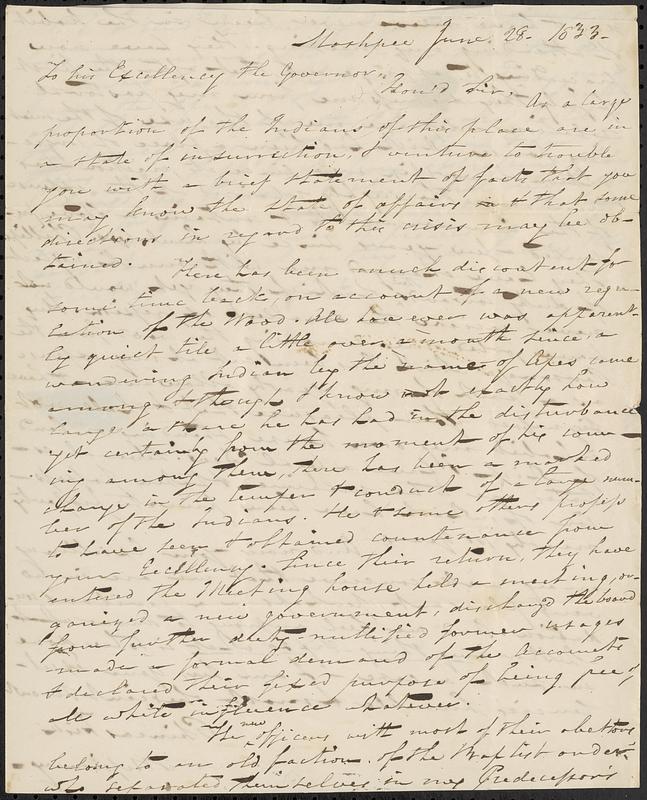 Marshpee June 28- 1833-
To his Excellency the Governor,
Hon'd Sir, As a large
proportion of the Indians of this place are in
a state of insurrection, I venture to trouble
you with a brief statement of facts that you
may know the state of affairs & that some
directions in regard to this crisis may be ob-
tained. There has been much discontent for
some time back, on account of a new regu-
lation of the Wood. All however was apparent-
ly quiet till a little over a month since, a
wandering Indian by the name of Apes came
among & though I know not exactly how
large a share he has had in the disturbance
yet certainly from the moment of his com-
ing among them, there has been a marked
change in the temper & conduct of a large num-
ber of the Indians. He & some others profess
to have seen & obtained countenance from
your Excellency. Since their return, they have
entered the Meeting house held a meeting, or-
ganized a new government, discharged the board
from further duty- nullified former usages
made a formal demand of the Accounts
& declared their fixed purpose of being free
all white influence whatever.
The new officers with most of their abettors
belong to an old faction. of the Baptist order
who separated themselves in my Predecessors